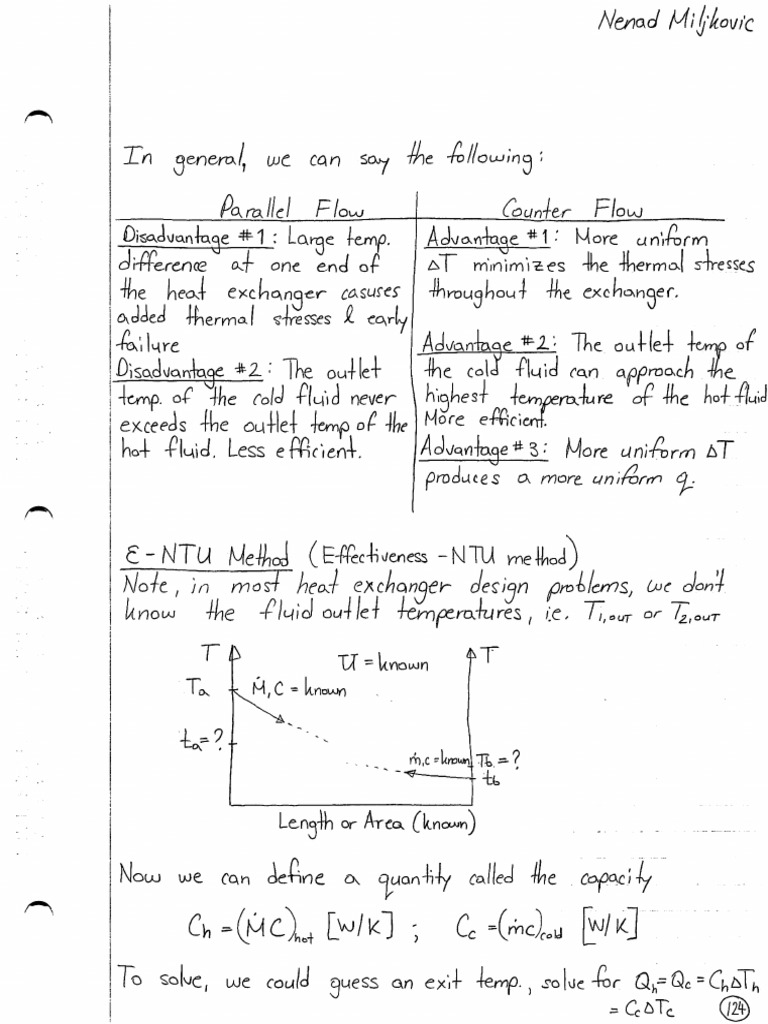 Nenad Miljkovic
In general, we can say the following:
Parallel Flow
Disadvantage #1: Large temp.
difference at one end of
the heat exchanger casuses
added thermal stresses & early
failure
Disadvantage #2: The outlet
temp. of the cold fluid never
exceeds the outlet temp of the
hot fluid. Less efficient.
Counter Flow
Advantage #1: More uniform
ΔT minimizes the thermal stresses
throughout the exchanger.
Advantage #2: The outlet temp of
the cold fluid can approach the
highest temperature of the hot fluid
More efficient.
Advantage #3: More uniform ΔT
produces a more uniform q.
ε-NTU Method (Effectiveness-NTU method)
Note, in most heat exchanger design problems, we don't
know the fluid outlet temperatures, i.e. T1,OUT or T2,OUT
T
U = known
T
Ta
Ṁ, C = known
ta = ?
ṁ,c = known
Tb = ?
tb
Length or Area (known)
Now we can define a quantity called the capacity
Ch = (ṀC)hot [W/K] ; Cc = (ṁc)cold [W/K]
To solve, we could guess an exit temp., solve for Qh = Qc = ChΔTh
= CcΔTc
124